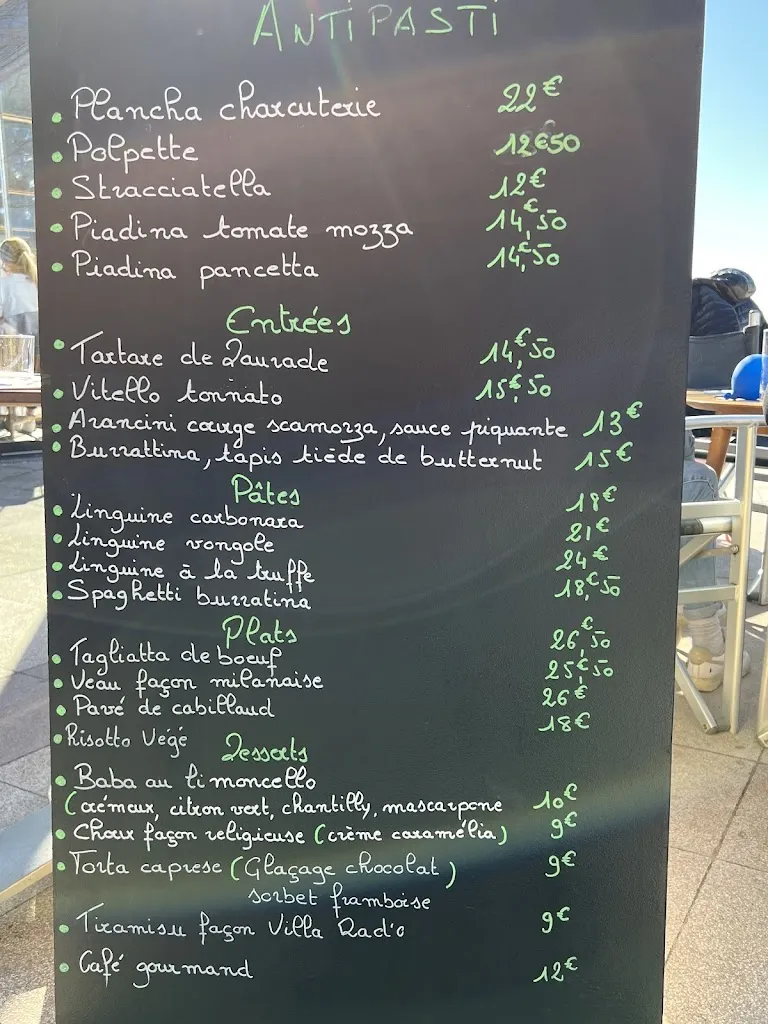 ANTIPASTI
• Plancha charcuterie 22€
• Polpette 12€50
• Stracciatella 12€
• Piadina tomate mozza 14,€50
• Piadina pancetta 14,€50
Entrées
• Tartare de Daurade 14,€50
• Vitello tonnato 15,€50
• Arancini courge scamorza, sauce piquante 13€
• Burrattina, tapis tiède de butternut 15€
Pâtes
• Linguine carbonara 18€
• Linguine vongole 21€
• Linguine à la truffe 24€
• Spaghetti burratina 18,€50
Plats
• Tagliatta de boeuf 26,€50
• Veau façon milanaise 25,€50
• Pavé de cabillaud 26€
• Risotto Végé 18€
Desserts
• Baba au limoncello
(crémeux, citron vert, chantilly, mascarpone 10€
• Choux façon religieuse (crème caramélia) 9€
• Torta caprese (Glaçage chocolat) 9€
sorbet framboise
• Tiramisu façon Villa Rad'o 9€
• Café gourmand 12€